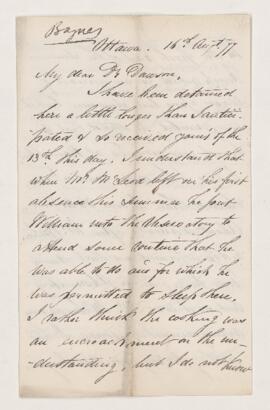 Baynes
Ottawa. 16th Augt 77
My dear Dr Dawson,
I have been detained
here a little longer than I antici-
pated & so received yours of the
13th this day. I understand that
when Mr McLeod left on his first
absence this summer he put
William into the Observatory to
attend some routine that he
was able to do and for which he
was permitted to sleep there.
I rather think the cooking was
an encroachment on the un-
-derstanding, but I do not know